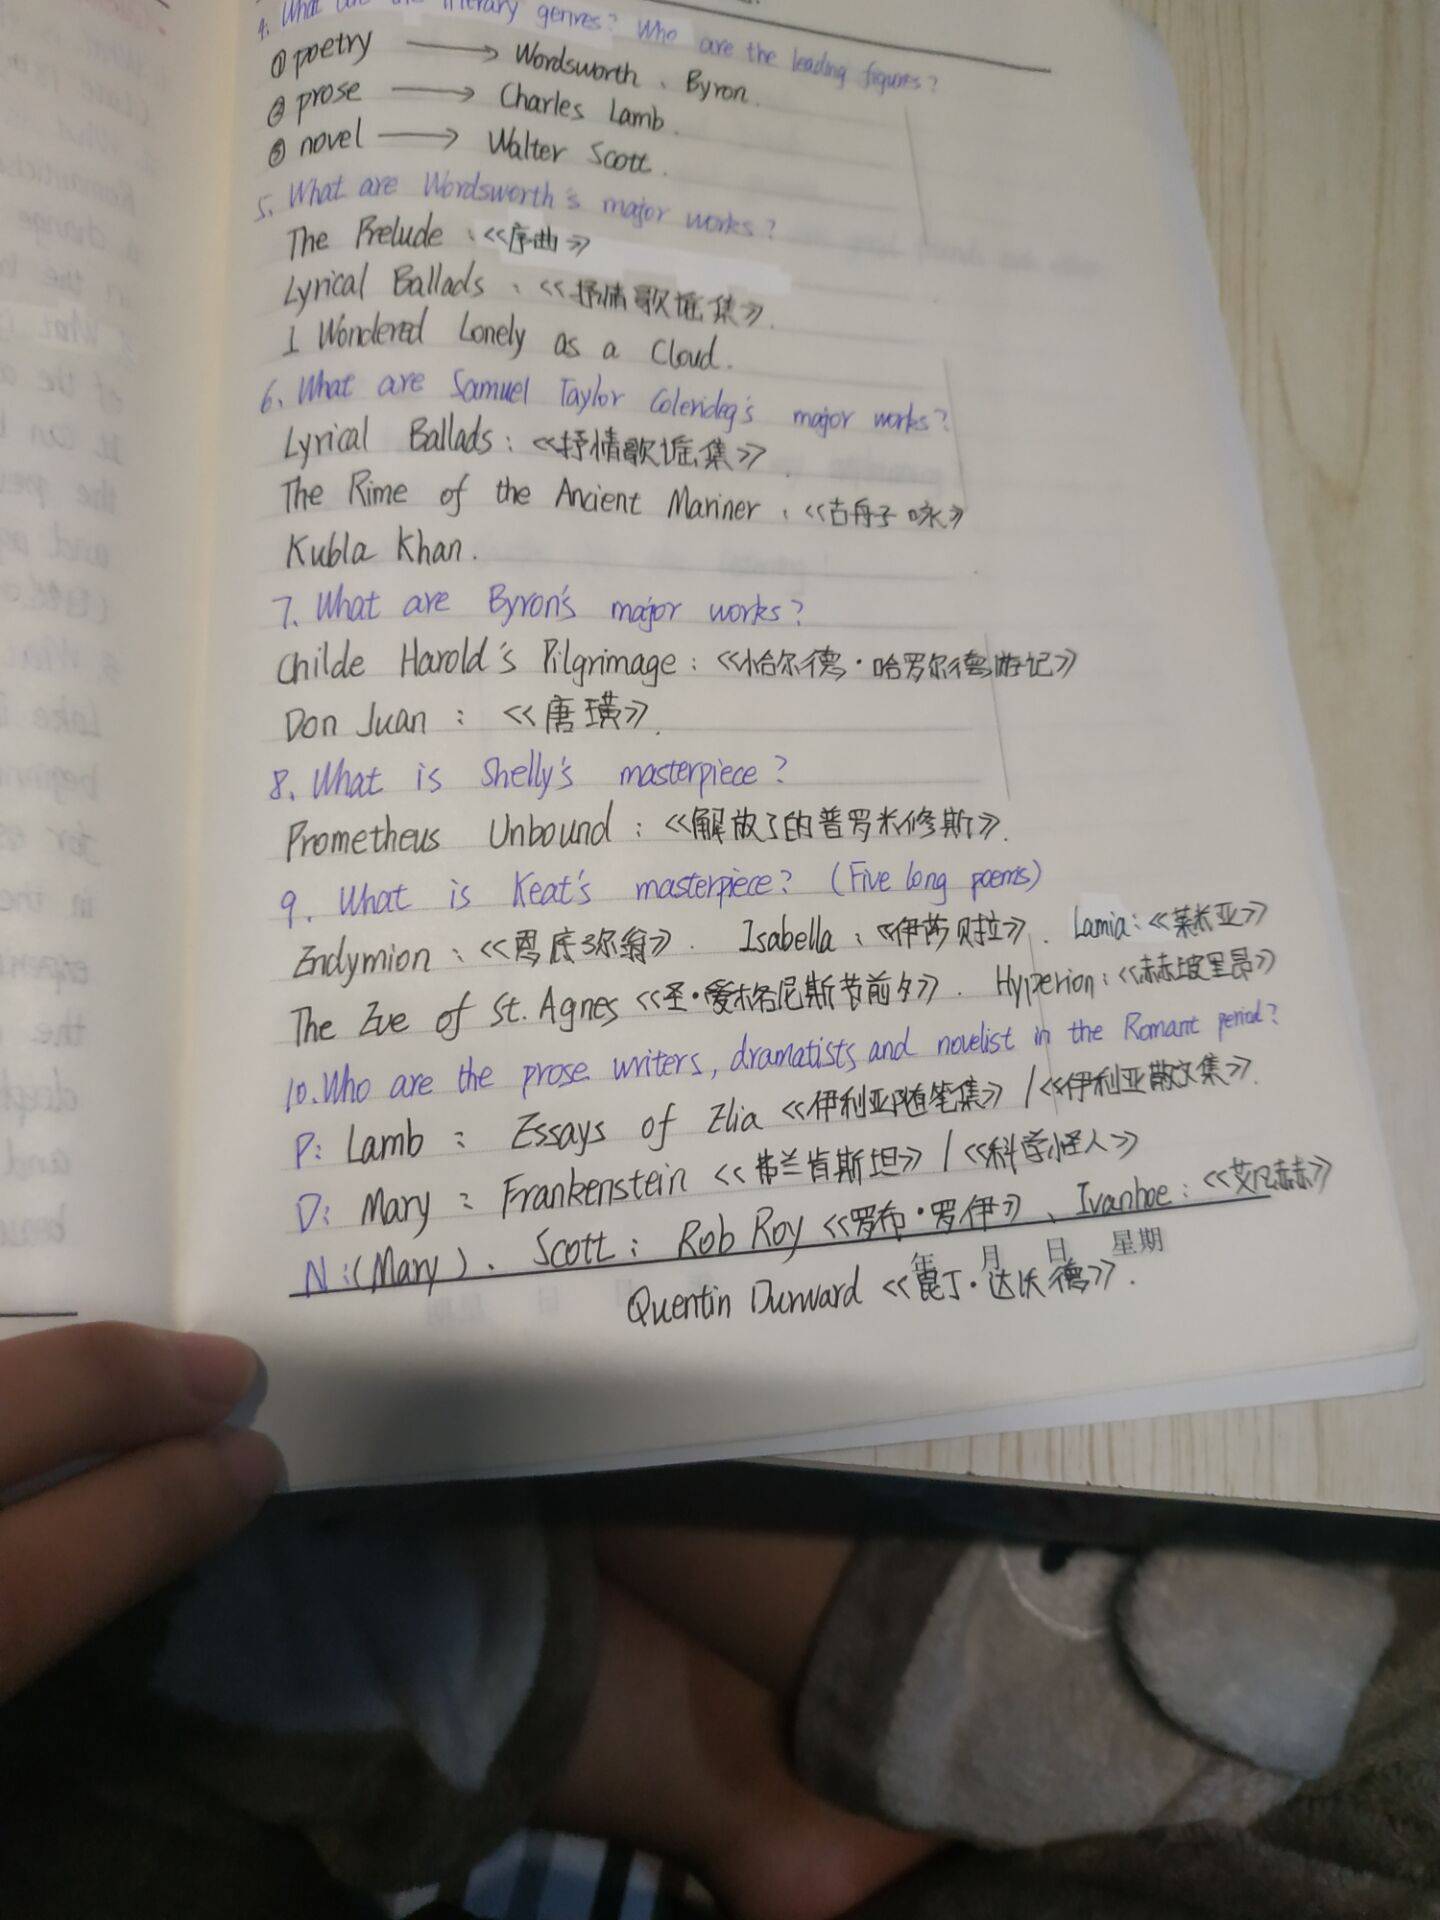 4. What are the literary genres? Who are the leading figures?
① poetry → Wordsworth、Byron.
② prose → Charles Lamb.
③ novel → Walter Scott.
5. What are Wordsworth's major works?
The Prelude :《序曲》
Lyrical Ballads :《抒情歌谣集》.
I Wondered Lonely as a Cloud.
6. What are Samuel Taylor Colerideg's major works?
Lyrical Ballads :《抒情歌谣集》.
The Rime of the Ancient Mariner :《古舟子咏》
Kubla Khan.
7. What are Byron's major works?
Childe Harold's Pilgrimage :《恰尔德·哈罗尔德游记》
Don Juan :《唐璜》.
8. What is Shelly's masterpiece?
Prometheus Unbound :《解放了的普罗米修斯》.
9. What is Keat's masterpiece? (Five long poems)
Endymion :《恩底弥翁》. Isabella :《伊莎贝拉》. Lamia :《莱米亚》
The Eve of St. Agnes《圣·爱格尼斯节前夕》. Hyperion :《赫坡里昂》
10. Who are the prose writers, dramatists and novelist in the Romant period?
P: Lamb : Essays of Elia《伊利亚随笔集》/《伊利亚散文集》.
D: Mary : Frankenstein《弗兰肯斯坦》/《科学怪人》
N:(Mary)、Scott : Rob Roy《罗布·罗伊》、Ivanhoe :《艾凡赫》
年 月 日 星期
Quentin Durward《昆丁·达沃德》.